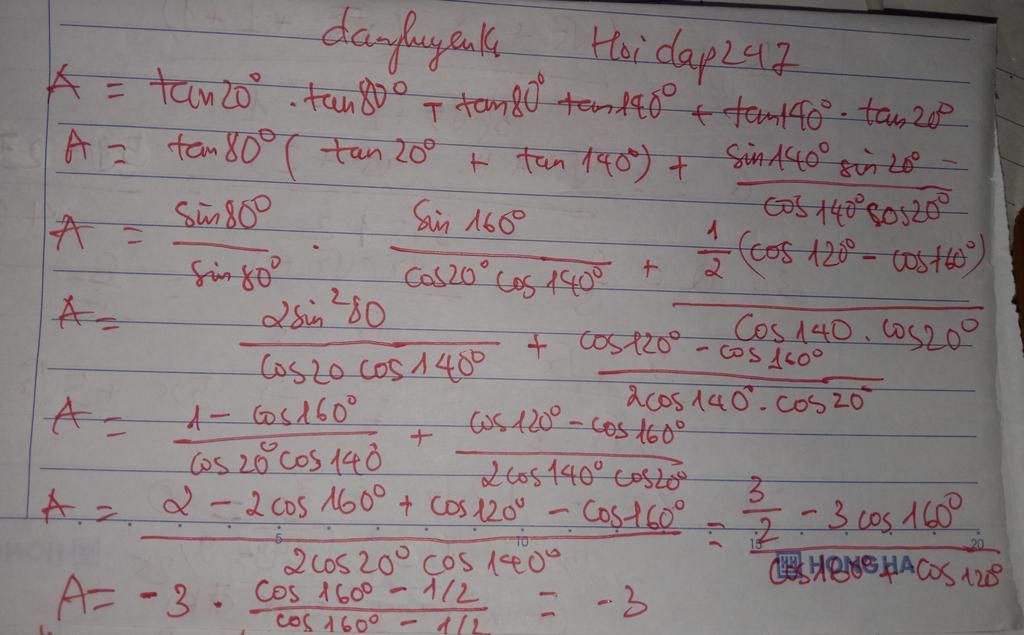 danghuyenk Hoidap247
A = tan20° . tan80° + tan80° tan140° + tan140° . tan20°
A = tan80° ( tan20° + tan140°) + sin140° sin20° / cos140° cos20°
A = sin80° / sin80° . sin160° / cos20° cos140° + 1/2 (cos120° - cos160°) / cos140 . cos20°
A = 2sin²80 / cos20 cos140° + cos120° - cos160° / 2cos140° . cos20°
A = 1 - cos160° / cos20° cos140 + cos120° - cos160° / 2cos140° cos20°
A = 2 - 2cos160° + cos120° - cos160° / 2cos20° cos140° = 3/2 - 3cos160° / cos160° + cos120°
5 10 15 20
HONG HA
A = -3 . cos160° - 1/2 / cos160° - 1/2 = -3